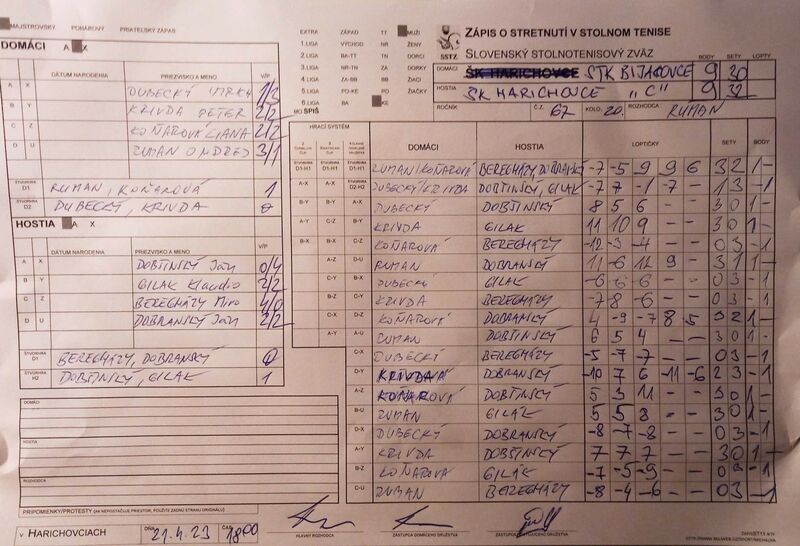 MAJSTROVSKÝ POHÁROVÝ PRIATEĽSKÝ ZÁPAS
DOMÁCI A X
DÁTUM NARODENIA PRIEZVISKO A MENO V/P
A X DUBECKÝ 1/3
B Y KRIVDA PETER 2/2
C Z KOŇAROVÁ LIANA 2/2
D U RUMAN ONDREJ 3/1
ŠTVORHRA D1 RUMAN, KOŇAROVÁ 1
ŠTVORHRA D2 DUBECKÝ, KRIVDA 0
HOSTIA A X
DÁTUM NARODENIA PRIEZVISKO A MENO V/P
A X DOBŠINSKÝ Ján 0/4
B Y GILAK Klaudio 2/2
C Z BEREGHÁZY Miro 4/0
D U DOBRANSKÝ Ján 2/2
ŠTVORHRA D1 BEREGHÁZY, DOBRANSKÝ 0
ŠTVORHRA H2 DOBŠINSKÝ, GILAK 1
DOMÁCI
HOSTIA
ROZHODCA
PRIPOMIENKY/PROTESTY (AK NEPOSTAČUJE PRIESTOR, POUŽITE ZADNÚ STRANU ORIGINÁLU)
V HARICHOVCIACH DŇA 21.4.23 ČAS 18:00
EXTRA ZÁPAD TT MUŽI
1.LIGA VÝCHOD NR ŽENY
2.LIGA BA-TT TN DORCI
3.LIGA NR-TN ZA DORKY
4.LIGA ZA-BB BB ŽIACI
5.LIGA PO-KE PO ŽIAČKY
6.LIGA BA KE
MO SPIŠ
SSTZ
ZÁPIS O STRETNUTÍ V STOLNOM TENISE
SLOVENSKÝ STOLNOTENISOVÝ ZVÄZ
BODY SETY LOPTY
DOMÁCI ŠK HARICHOVCE STK BIJACOVCE 9 30
HOSTIA ŠK HARICHOVCE "C" 9 32
ROČNÍK Č.Z. 67 KOLO 20. ROZHODCA RUMAN
HRACÍ SYSTÉM DOMÁCI HOSTIA LOPTIČKY SETY BODY
ŠTVORHRA D1-H1 ŠTVORHRA D1-H1 ŠTVORHRA D1-H1 RUMAN/KOŇAROVÁ BEREGHÁZY, DOBRANSKÝ -7 -5 9 9 6 3 2 1 -
A-X A-X ŠTVORHRA D2-H2 DUBECKÝ/KRIVDA DOBŠINSKÝ, GILAK -7 7 -1 -7 - 1 3 - 1
B-Y B-Y A-X DUBECKÝ DOBŠINSKÝ 8 5 6 - - 3 0 1 -
A-Y C-Z B-Y KRIVDA GILAK 11 10 9 - - 3 0 1 -
B-X B-X C-Z KOŇAROVÁ BEREGHÁZY -12 -3 -4 - - 0 3 - 1
A-Z D-U RUMAN DOBRANSKÝ 11 -6 12 9 - 3 1 1 -
C-Y B-X DUBECKÝ GILAK -6 -6 -6 - - 0 3 - 1
B-Z C-Y KRIVDA BEREGHÁZY -7 -8 -6 - - 0 3 - 1
C-X D-Z KOŇAROVÁ DOBRANSKÝ 4 -9 -7 8 5 3 2 1 -
A-Y A-U RUMAN DOBŠINSKÝ 6 5 4 - - 3 0 1 -
C-X DUBECKÝ BEREGHÁZY -5 -7 -7 - - 0 3 - 1
D-Y KRIVDA DOBRANSKÝ -10 7 6 -11 -6 2 3 - 1
A-Z KOŇAROVÁ DOBŠINSKÝ 5 3 11 - - 3 0 1 -
B-U RUMAN GILAK 5 5 8 - - 3 0 1 -
D-X DUBECKÝ DOBRANSKÝ -8 -7 -8 - - 0 3 - 1
A-Y KRIVDA DOBŠINSKÝ 7 7 7 - - 3 0 1 -
B-Z KOŇAROVÁ GILAK -7 -5 -9 - - 0 3 - 1
C-U RUMAN BEREGHÁZY -8 -4 -6 - - 0 3 - 1
HLAVNÝ ROZHODCA ZÁSTUPCA DOMÁCEHO DRUŽSTVA ZÁSTUPCA HOSŤUJÚCEHO DRUŽSTVA